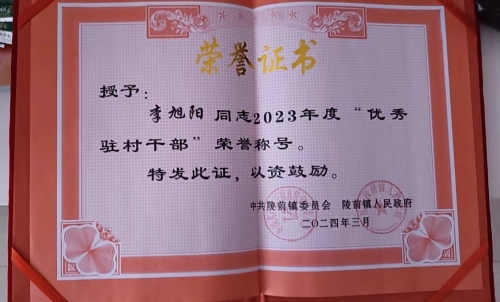 荣誉证书
授予：
李旭阳同志2023年度“优秀
驻村干部”荣誉称号。
特发此证，以资鼓励。
中共陵前镇委员会 陵前镇人民政府
二〇二四年三月